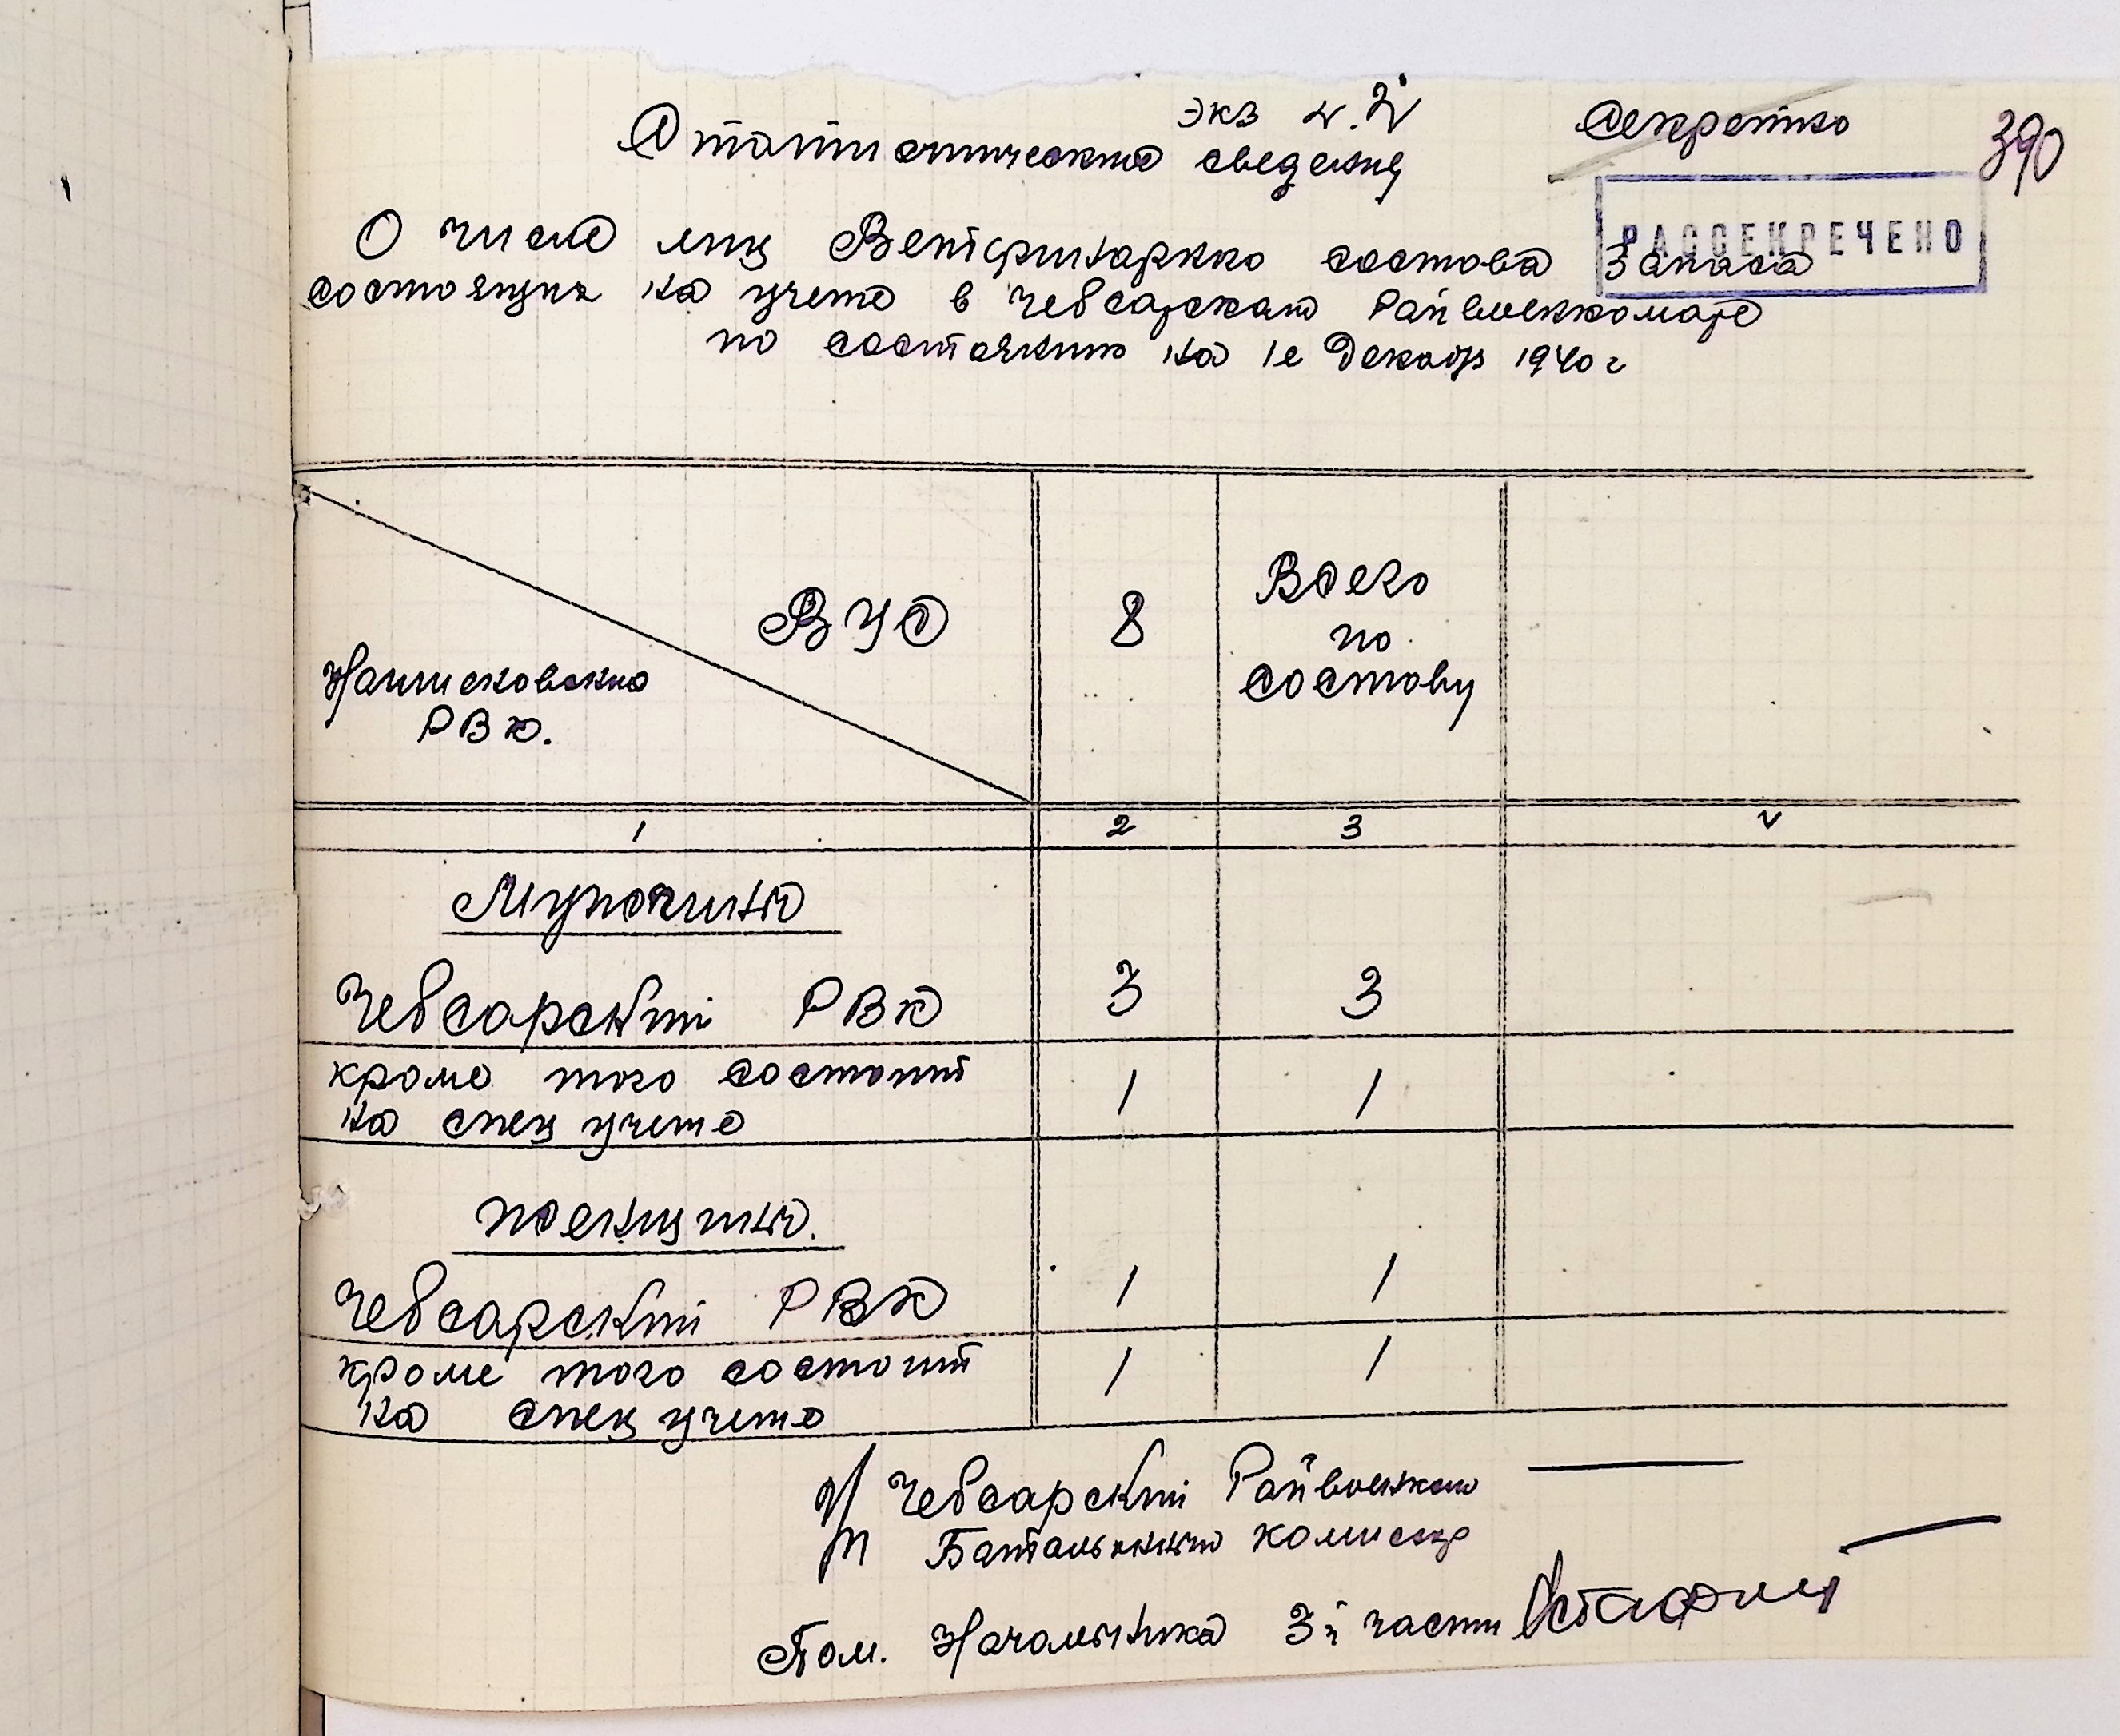 экз № 2
Секретно
390
Статистические сведения
РАССЕКРЕЧЕНО
О числе лиц Ветеринарного состава Запаса
состоящих на учете в Чебсарском Райвоенкомате
по состоянию на 1е Декабря 1940 г
ВУС
8
Всего
по
составу
Наименование
РВК.
1 2 3 4
Мужчины
Чебсарский РВК 3 3
кроме того состоит 1 1
на спец учете
женщины.
Чебсарский РВК 1 1
кроме того состоит 1 1
на спец учете
Чебсарский Райвоенком
Батальонный комиссар
Пом. Начальника 3й части